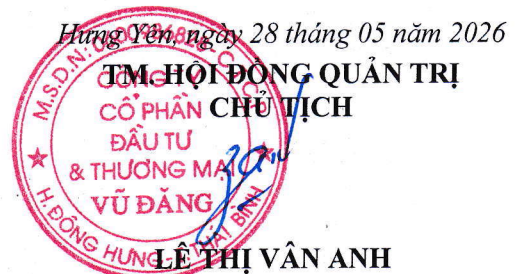 Hưng Yên, ngày 28 tháng 05 năm 2026
TM. HỘI ĐỒNG QUẢN TRỊ
CHỦ TỊCH
M.S.D.N:
CÔNG
CỔ PHẦN
ĐẦU TƯ
& THƯƠNG MẠI
VŨ ĐĂNG
H. ĐÔNG HƯNG THÁI BÌNH
LÊ THỊ VÂN ANH